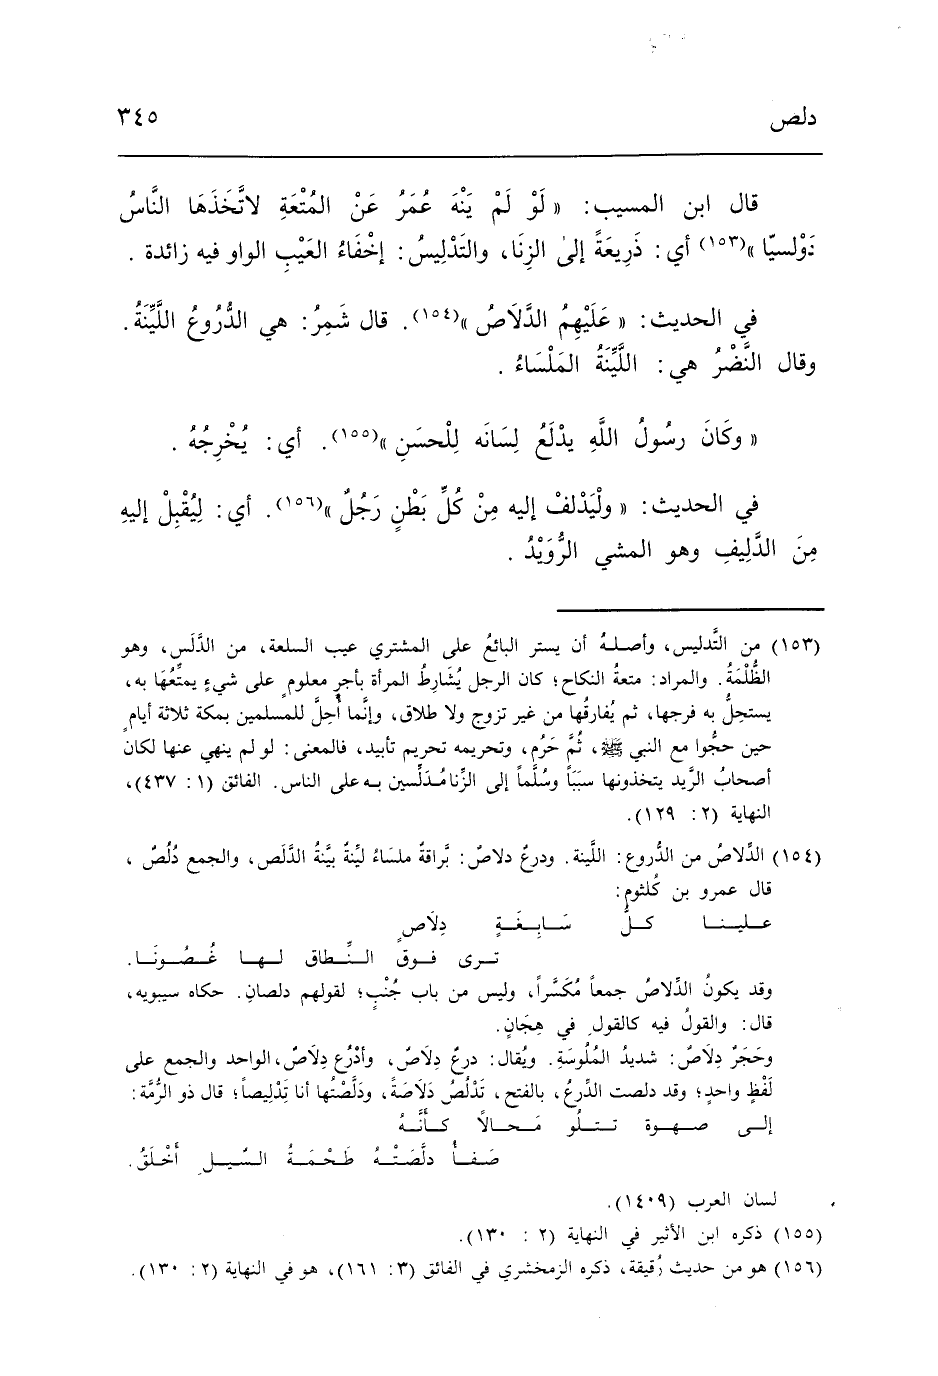 دلص ٣٤٥
قال ابن المسيب: « لَوْ لَمْ يَنْهَ عُمَرُ عَنْ المُتْعَةِ لاتَّخَذَهَا النَّاسُ
دَوْلسيّا »(١٥٣) أي: ذَرِيعَةً إلىٰ الزِنَا، والتَدْلِيسُ: إخْفَاءُ العَيْبِ الواو فيه زائدة .
في الحديث: « عَلَيْهِمُ الدَّلَاصُ »(١٥٤). قال شَمِرُ: هي الدُّرُوعُ اللَّيِّنَةُ.
وقال النَّضْرُ هي: اللَّيِّنَةُ المَلْسَاءُ .
« وكَانَ رسُولُ اللَّهِ يدْلَعُ لِسَانَه لِلْحسَنِ »(١٥٥). أي: يُخْرِجُهُ .
في الحديث: « ولْيَدْلفْ إليه مِنْ كُلِّ بَطْنٍ رَجُلٌ »(١٥٦). أي: لِيُقْبِلْ إليهِ
مِنَ الدَّلِيفِ وهو المشي الرُّوَيْدُ .
(١٥٣) من التَّدليس، وأصلهُ أن يستر البائعُ على المشتري عيب السلعة، من الدَّلَس، وهو
الظُّلْمَةُ. والمراد: متعةُ النكاح؛ كان الرجل يُشَارِطُ المرأة بأجرٍ معلومٍ على شيءٍ يمتِّعُهَا به،
يستحلُّ به فرجها، ثم يُفارقُها من غير تزوج ولا طلاق، وإنَّما أُحِلَّ للمسلمين بمكة ثلاثة أيامٍ
حين حجُّوا مع النبي ﷺ، ثُمَّ حَرُم، وتحريمه تحريم تأبيد، فالمعنى: لو لم ينهي عنها لكان
أصحابُ الرَّيد يتخذونها سبَبَاً وسُلَّماً إلى الزِّنا مُدَلِّسين به على الناس. الفائق (١: ٤٣٧)،
النهاية (٢: ١٢٩).
(١٥٤) الدِّلاصُ من الدُّروع: اللَّينة. ودرعٌ دلاصٌ: بَّراقةٌ ملسَاءُ ليِّنةٌ بيِّنةُ الدَّلَص، والجمع دُلُصٌ ،
قال عمرو بن كُلثوم:
علينا كلُّ سَابِغَةٍ دِلَاصٍ
ترى فوق النِّطاق لها غُضُونَا.
وقد يكونُ الدِّلاصُ جمعاً مُكَسَّراً، وليس من باب جُنُبٍ؛ لقولهم دلصان. حكاه سيبويه،
قال: والقولُ فيه كالقولِ في هِجَانٍ.
وحَجَرٌ دِلَاصٌ: شديدُ المُلُوسَةِ. ويُقال: درعٌ دِلَاصٌ، وأدْرُع دِلَاصٌ، الواحد والجمع على
لَفْظٍ واحدٍ؛ وقد دلصت الدِّرعُ، بالفتح، تَدْلُصُ دَلَاصَةً، ودَلَّصْتُها أنا تَدْلِيصاً؛ قال ذو الرُّمَّة:
إلى صهوة تتلُو مَحالاً كأنَّهُ
صَفاً دلَّصَتْهُ طَحْمَةُ السَّيلِ أَخْلَقُ.
لسان العرب (١٤٠٩).
(١٥٥) ذكره ابن الأثير في النهاية (٢: ١٣٠).
(١٥٦) هو من حديث رُقيقة، ذكره الزمخشري في الفائق (٣: ١٦١)، هو في النهاية (٢: ١٣٠).